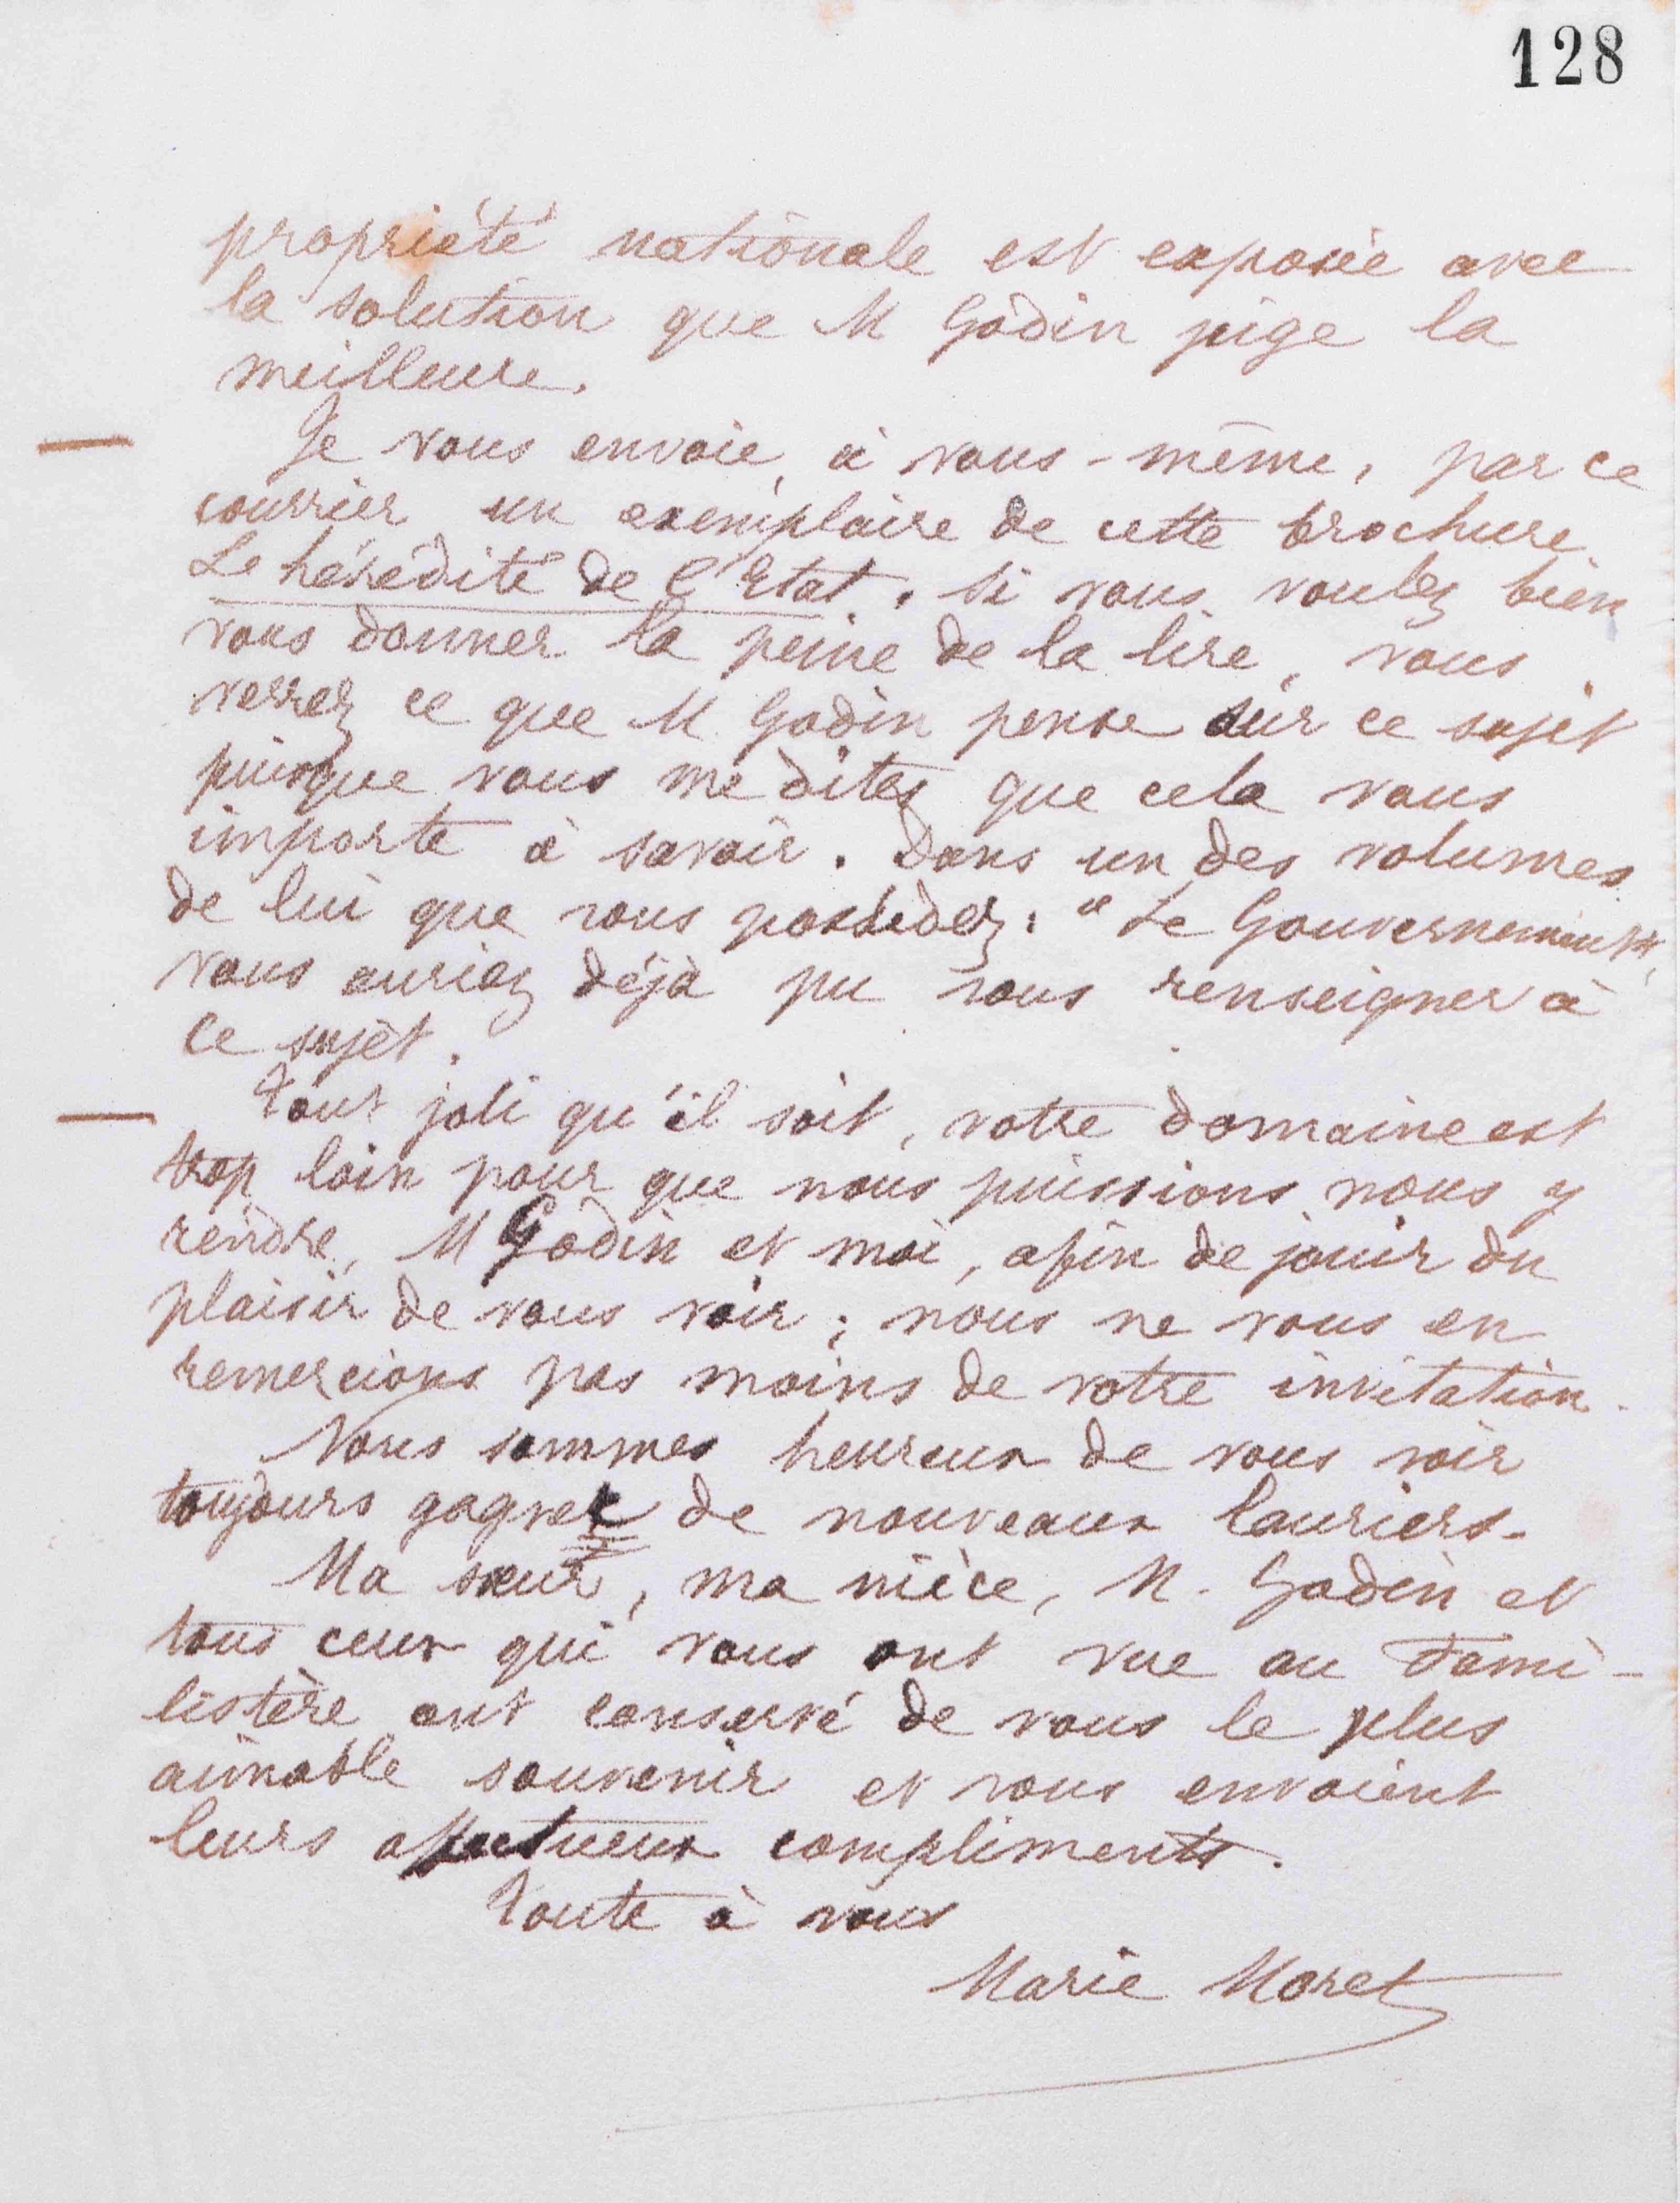 128
propriété nationale est exposée avec
la solution que M Godin juge la
meilleure.
Je vous envoie, à vous-même, par ce
courrier un exemplaire de cette brochure
Le hérédité de l'Etat. Si vous voulez bien
vous donner la peine de la lire, vous
verrez ce que M. Godin pense sur ce sujet
puisque vous me dites que cela vous
importe à savoir. Dans un des volumes
de lui que vous possédez: "Le Gouvernement",
vous auriez déjà pu vous renseigner à
ce sujet.
Tout joli qu'il soit, votre domaine est
trop loin pour que nous puissions nous y
rendre, M Godin et moi, afin de jouir du
plaisir de vous voir; nous ne vous en
remercions pas moins de votre invitation.
Nous sommes heureux de vous voir
toujours gagner de nouveaux lauriers.
Ma sœur, ma nièce, M. Godin et
tous ceux qui vous ont vue au Fami-
listère ont conservé de vous le plus
aimable souvenir et vous envoient
leurs affectueux compliments.
Toute à vous
Marie Moret